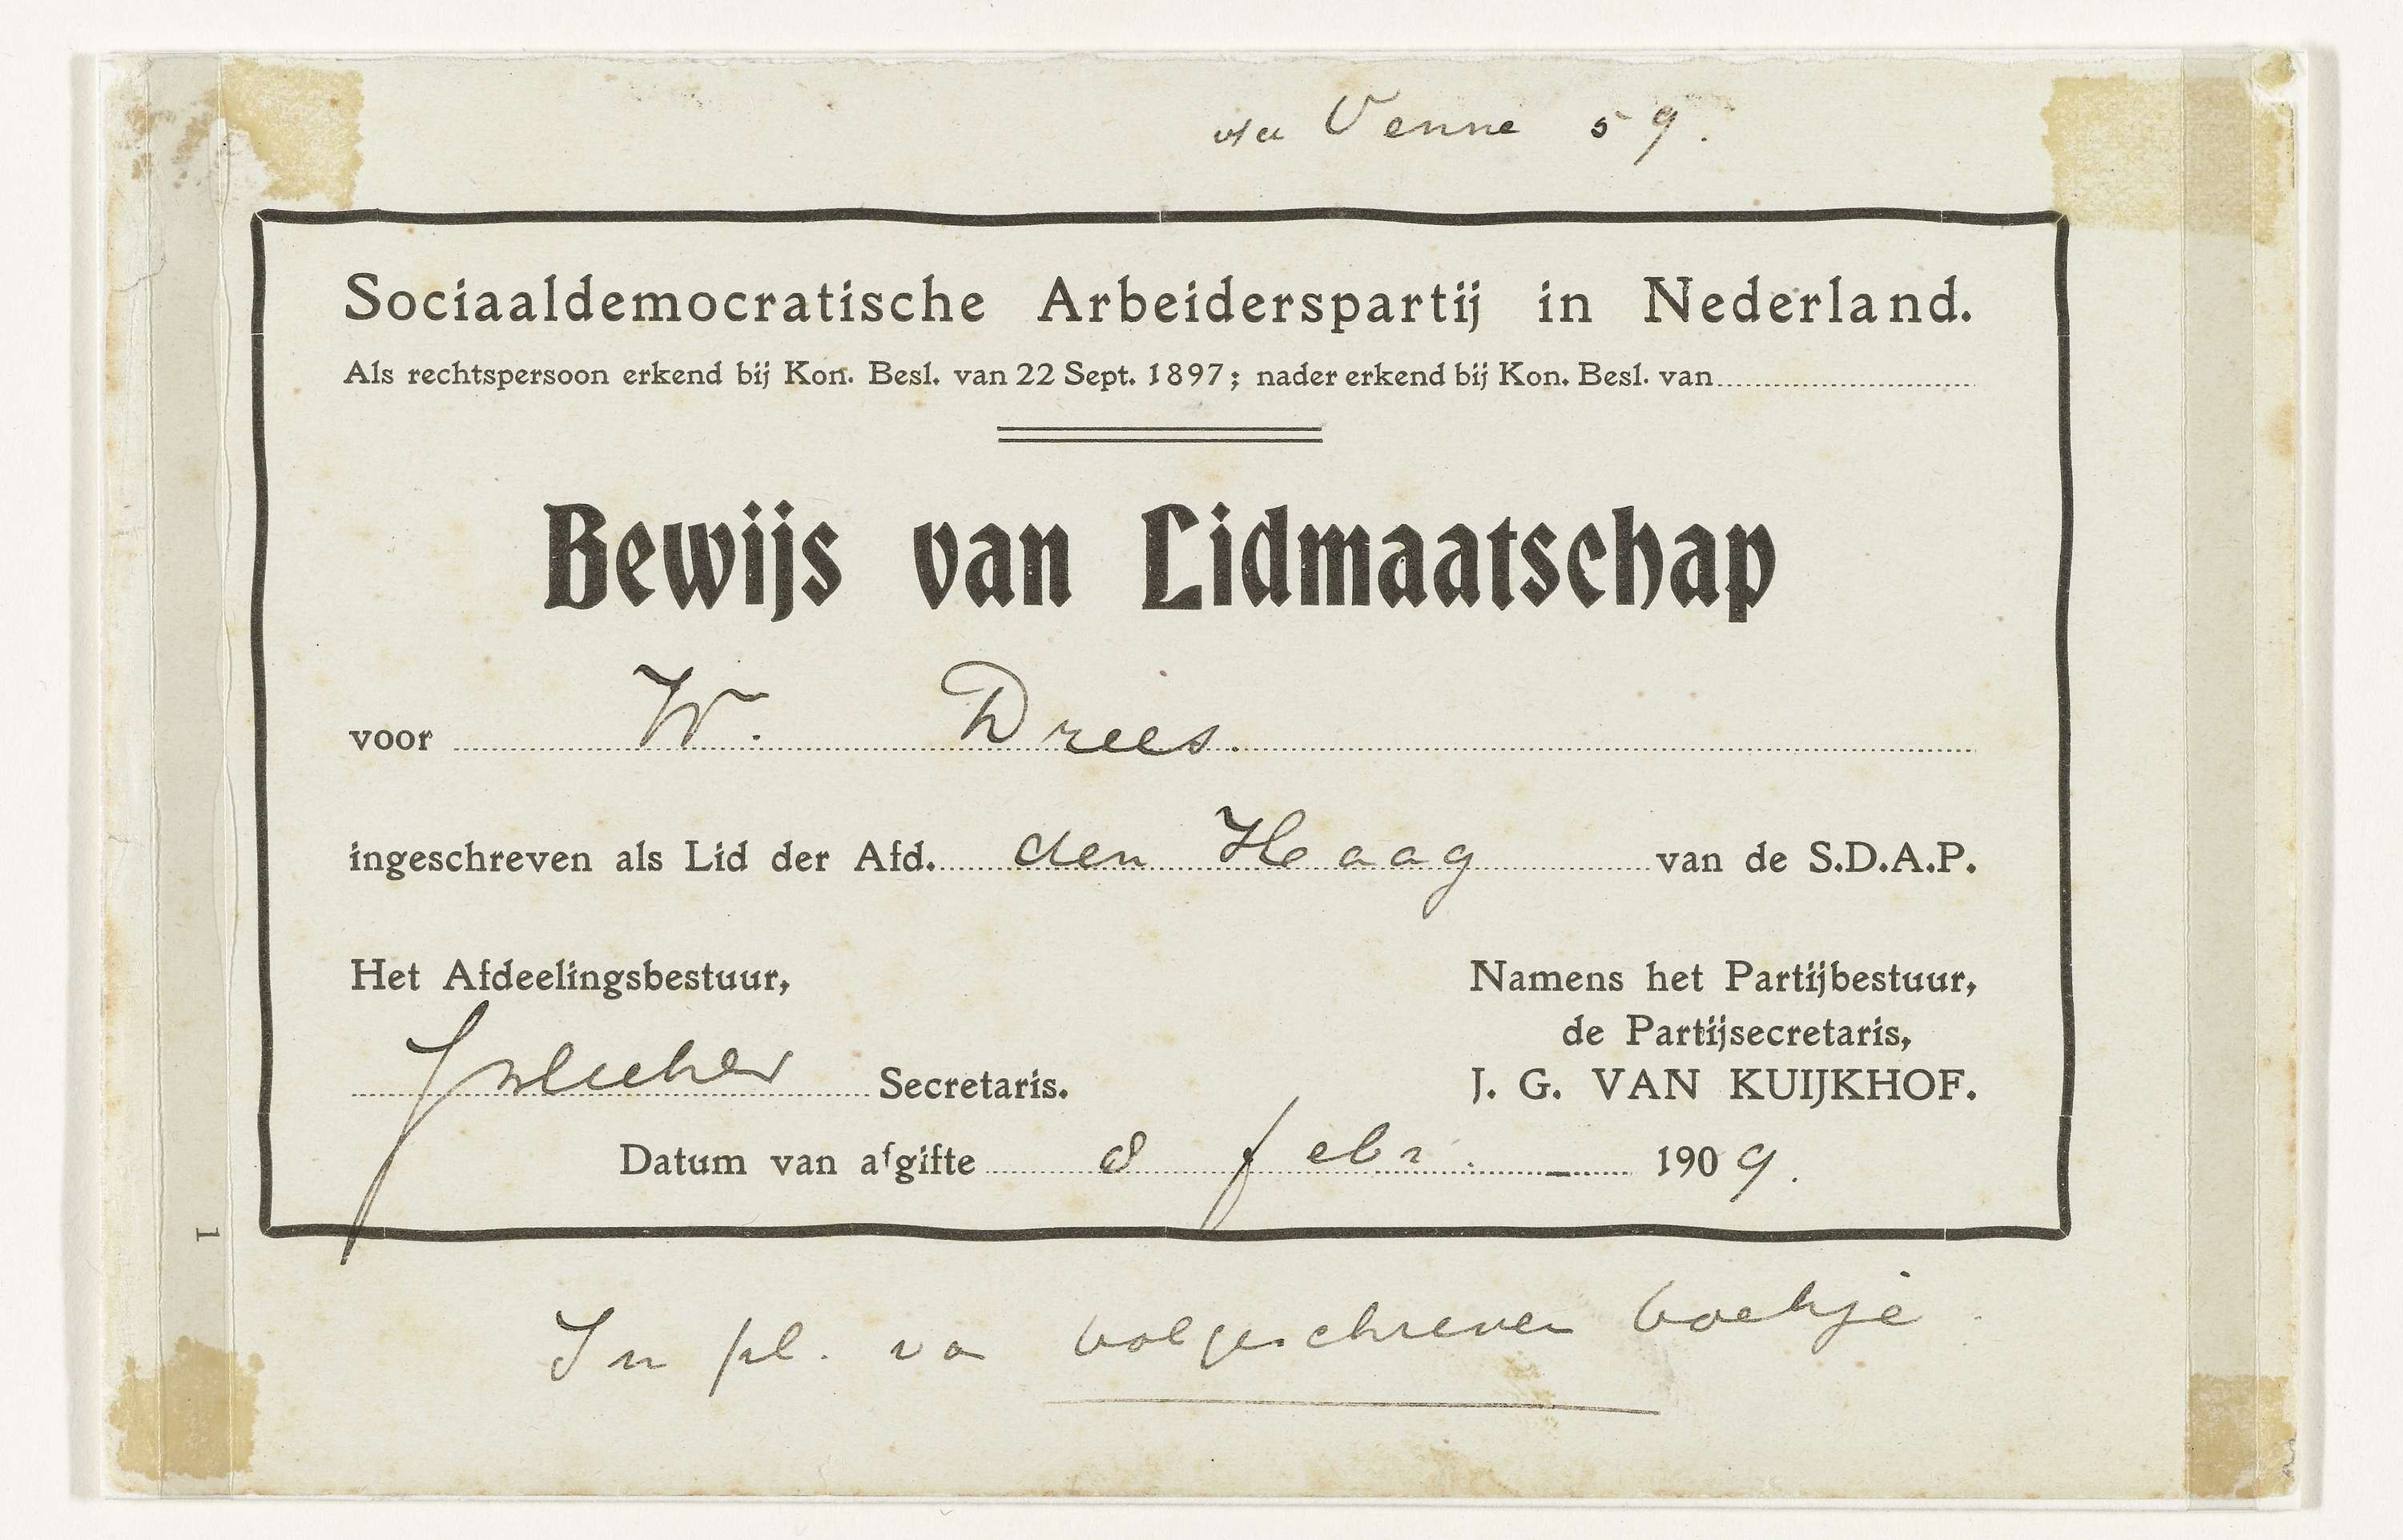 Venne 59.
Sociaaldemocratische Arbeiderspartij in Nederland.
Als rechtspersoon erkend bij Kon. Besl. van 22 Sept. 1897; nader erkend bij Kon. Besl. van
Bewijs van Lidmaatschap
voor W. Drees.
ingeschreven als Lid der Afd. den Haag van de S.D.A.P.
Het Afdeelingsbestuur,
Secretaris.
Namens het Partijbestuur,
de Partijsecretaris,
J. G. VAN KUIJKHOF.
Datum van afgifte 8 febr. 1909.
1
In pl. va volgeschreven boekje.